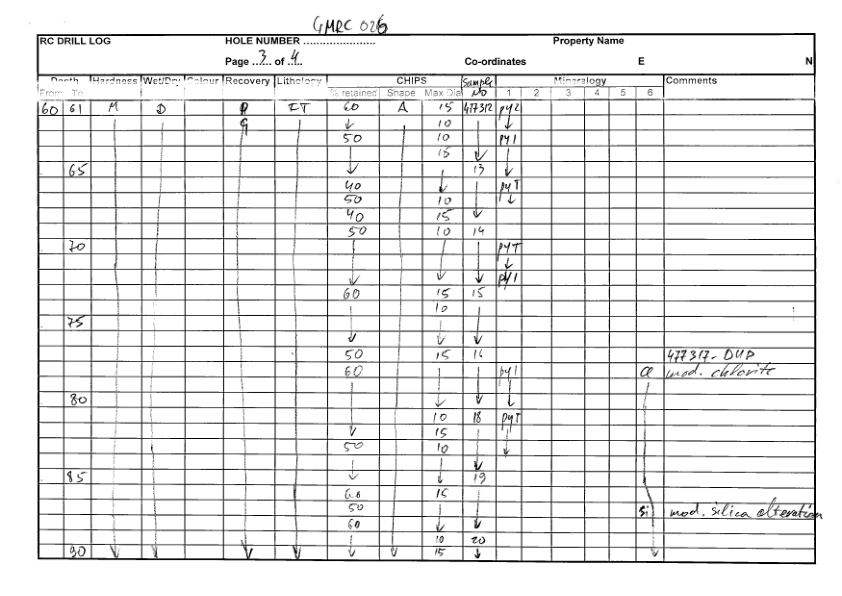 GMRC 026
RC DRILL LOG HOLE NUMBER ........................ Property Name
Page ..3.. of .4.. Co-ordinates E N
Depth Hardness Wet/Dry Colour Recovery Lithology CHIPS Sample No Mineralogy Comments
From To % retained Shape Max Dia 1 2 3 4 5 6
60 61 M D IT 60 A 15 477312 py2
G ↓ 10 ↓
50 10 py1
15 ↓
65 ↓ 13 ↓
40 ↓ pyT
50 10 ↓
40 15 ↓
50 10 14
70 pyT
↓
↓ ↓ ↓ py1
60 15 15
10
75
↓ ↓ ↓
50 15 16 477317- DUP
60 py1 cl mod. chlorite
80 ↓ ↓ ↓
10 18 pyT
↓ 15
50 10 ↓
↓
85 ↓ ↓ 19
60 15
50 si mod. silica alteration
60 ↓ ↓
10 20
90 ↓ ↓ ↓ ↓ ↓ ↓ 15 ↓ ↓